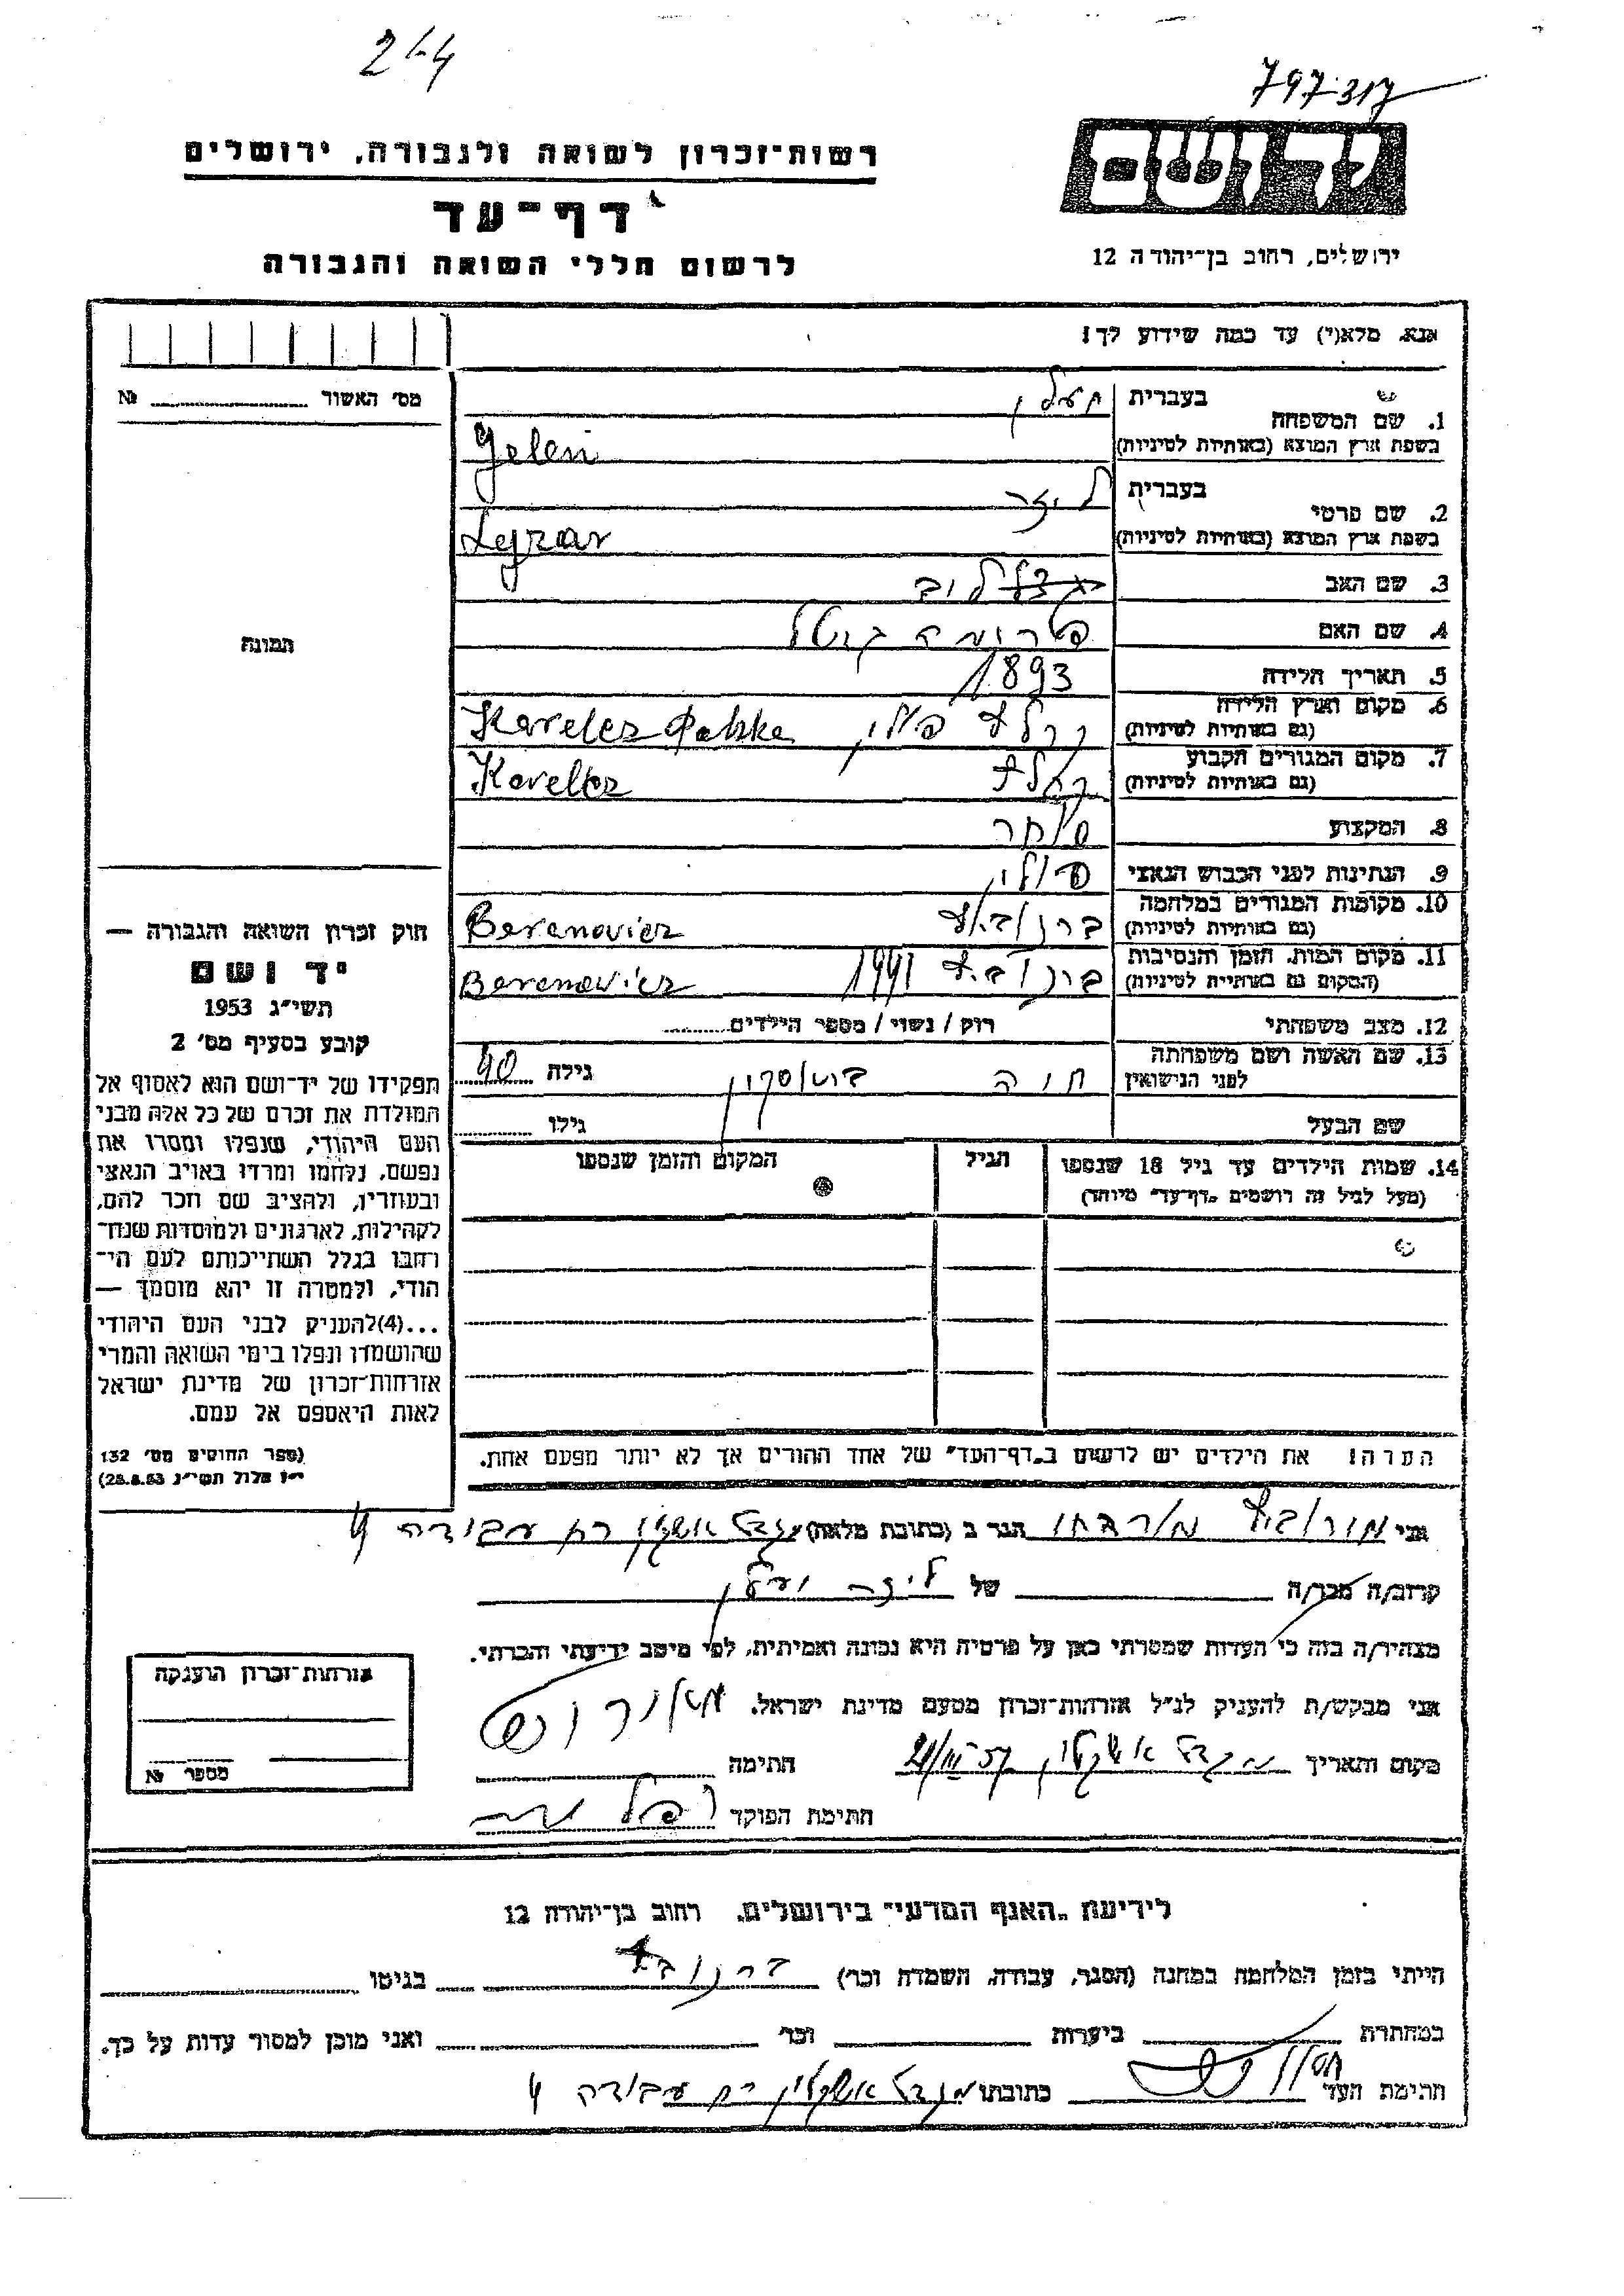 2-4
797317
רשות־זכרון לשואה ולגבורה, ירושלים
דף־עד
לרשום חללי השואה והגבורה
ירושלים, רחוב בן־יהודה 12
אנא, מלא(י) עד כמה שידוע לך!
מס׳ האשור № 
1. שם המשפחה בעברית
בשפת ארץ המוצא (באותיות לטיניות) Jelen
2. שם פרטי בעברית ליזר
בשפת ארץ המוצא (באותיות לטיניות) Lejzar
3. שם האב
4. שם האם
5. תאריך הלידה 1893
6. מקום וארץ הלידה
(גם באותיות לטיניות) פולין Korelez
7. מקום המגורים הקבוע
(גם באותיות לטיניות) Korelez
8. המקצוע סוחר
9. הנתינות לפני הכבוש הנאצי פולין
10. מקומות המגורים במלחמה
(גם באותיות לטיניות) Beranovicz
11. מקום המות, הזמן והנסיבות
(המקום גם באותיות לטיניות) 1941 Beranovicz
12. מצב משפחתי רוק / נשוי / מספר הילדים
13. שם האשה ושם משפחתה
לפני הנישואין חיה גילה 40
שם הבעל גילו
14. שמות הילדים עד גיל 18 שנספו
(מעל לגיל זה רושמים „דף־עד״ מיוחד)
הגיל
המקום והזמן שנספו
הערה: את הילדים יש לרשום ב„דף־העד״ של אחד ההורים אך לא יותר מפעם אחת.
תמונה
חוק זכרון השואה והגבורה —
יד ושם
תשי״ג 1953
קובע בסעיף מס׳ 2
תפקידו של יד־ושם הוא לאסוף אל
המולדת את זכרם של כל אלה מבני
העם היהודי, שנפלו ומסרו את
נפשם, נלחמו ומרדו באויב הנאצי
ובעוזריו, ולהציב שם וזכר להם,
לקהילות, לארגונים ולמוסדות שנח־
רבו בגלל השתייכותם לעם הי־
הודי, ולמטרה זו יהא מוסמך —
...(4) להעניק לבני העם היהודי
שהושמדו ונפלו בימי השואה והמרי
אזרחות־זכרון של מדינת ישראל
לאות היאספם אל עמם.
(ספר החוקים מס׳ 132
י״ז אלול תשי״ג 28.8.53)
אני מרדכי הגר ב (כתובת מלאה) מגדל אשקלון רח עבודה 4
קרוב/ה מכר/ה של ליזר ילין
מצהיר/ה בזה כי העדות שמסרתי כאן על פרטיה היא נכונה ואמיתית, לפי מיטב ידיעתי והכרתי.
אני מבקש/ת להעניק לנ״ל אזרחות־זכרון מטעם מדינת ישראל.
מקום ותאריך מגדל אשקלון 21/III 57 חתימה
חתימת הפוקד
אזרחות־זכרון הוענקה
מספר №
לידיעת „האגף המדעי״ בירושלים, רחוב בן־יהודה 12
הייתי בזמן המלחמה במחנה (הסגר, עבודה, השמדה וכו׳) בגיטו
במחתרת ביערות וכו׳ ואני מוכן למסור עדות על כך.
חתימת העד כתובתו מגדל אשקלון רח עבודה 4